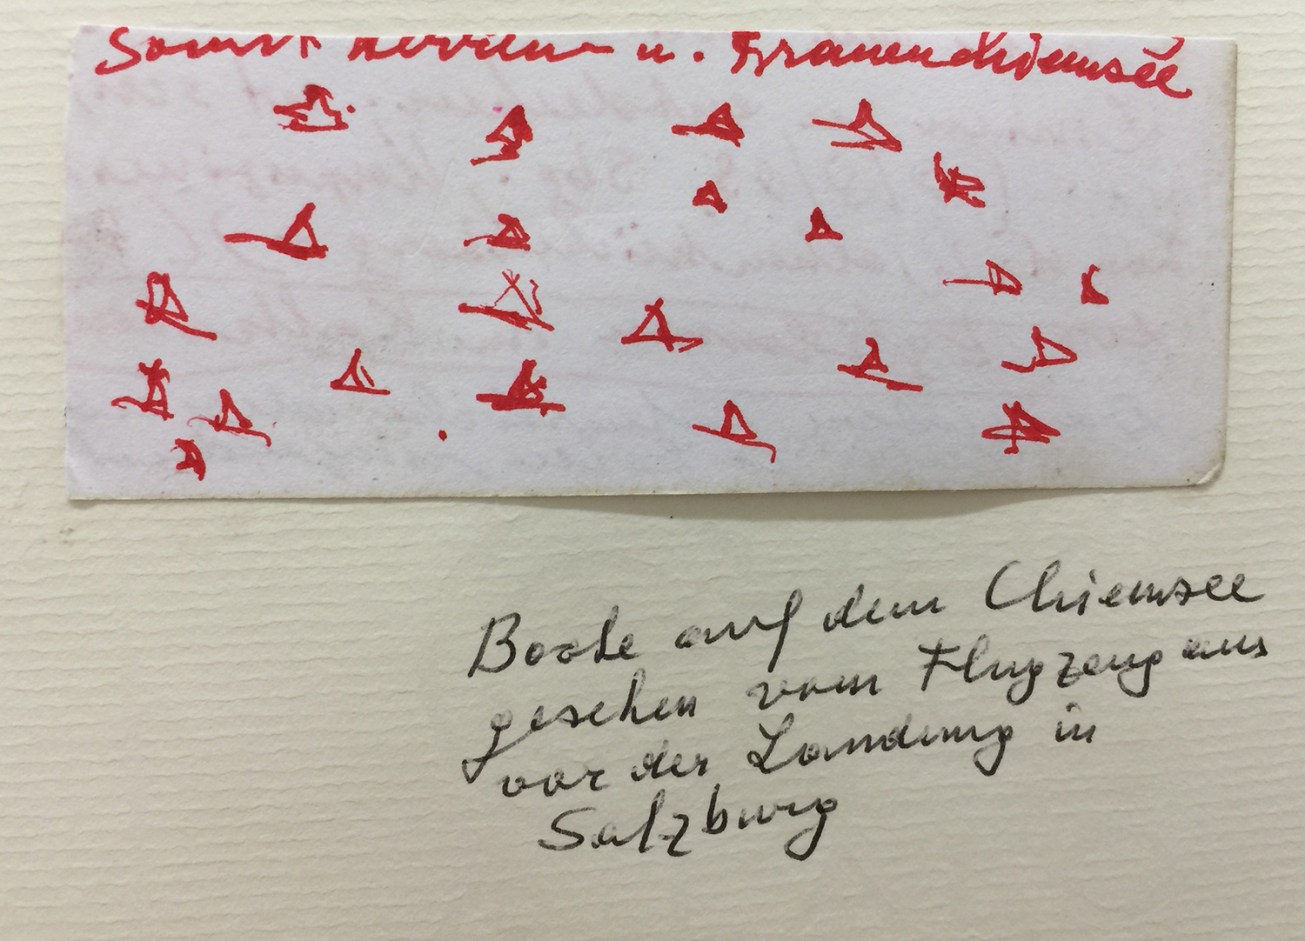 Samt Herren- u. Frauenchiemsee
Boote auf dem Chiemsee
gesehen vom Flugzeug aus
vor der Landung in
Salzburg